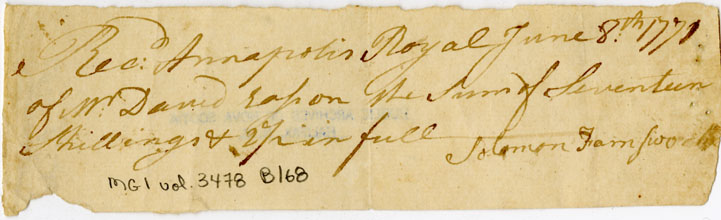 Recd. Annapolis Royal June 8th. 1771
of Mr David Eason the Sum of Seventeen
Shillings & in full
Solomon Farnsworth
MG1 vol. 3478 B168